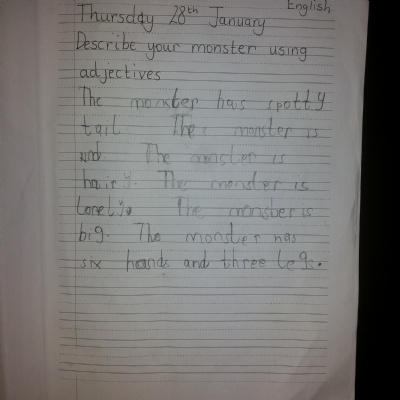 English
Thursday 28th January
Describe your monster using
adjectives
The monster has spotty
tail. The monster is
The monster is
hairy. The monster is
lonely. The monster is
big. The monster has
six hands and three legs.